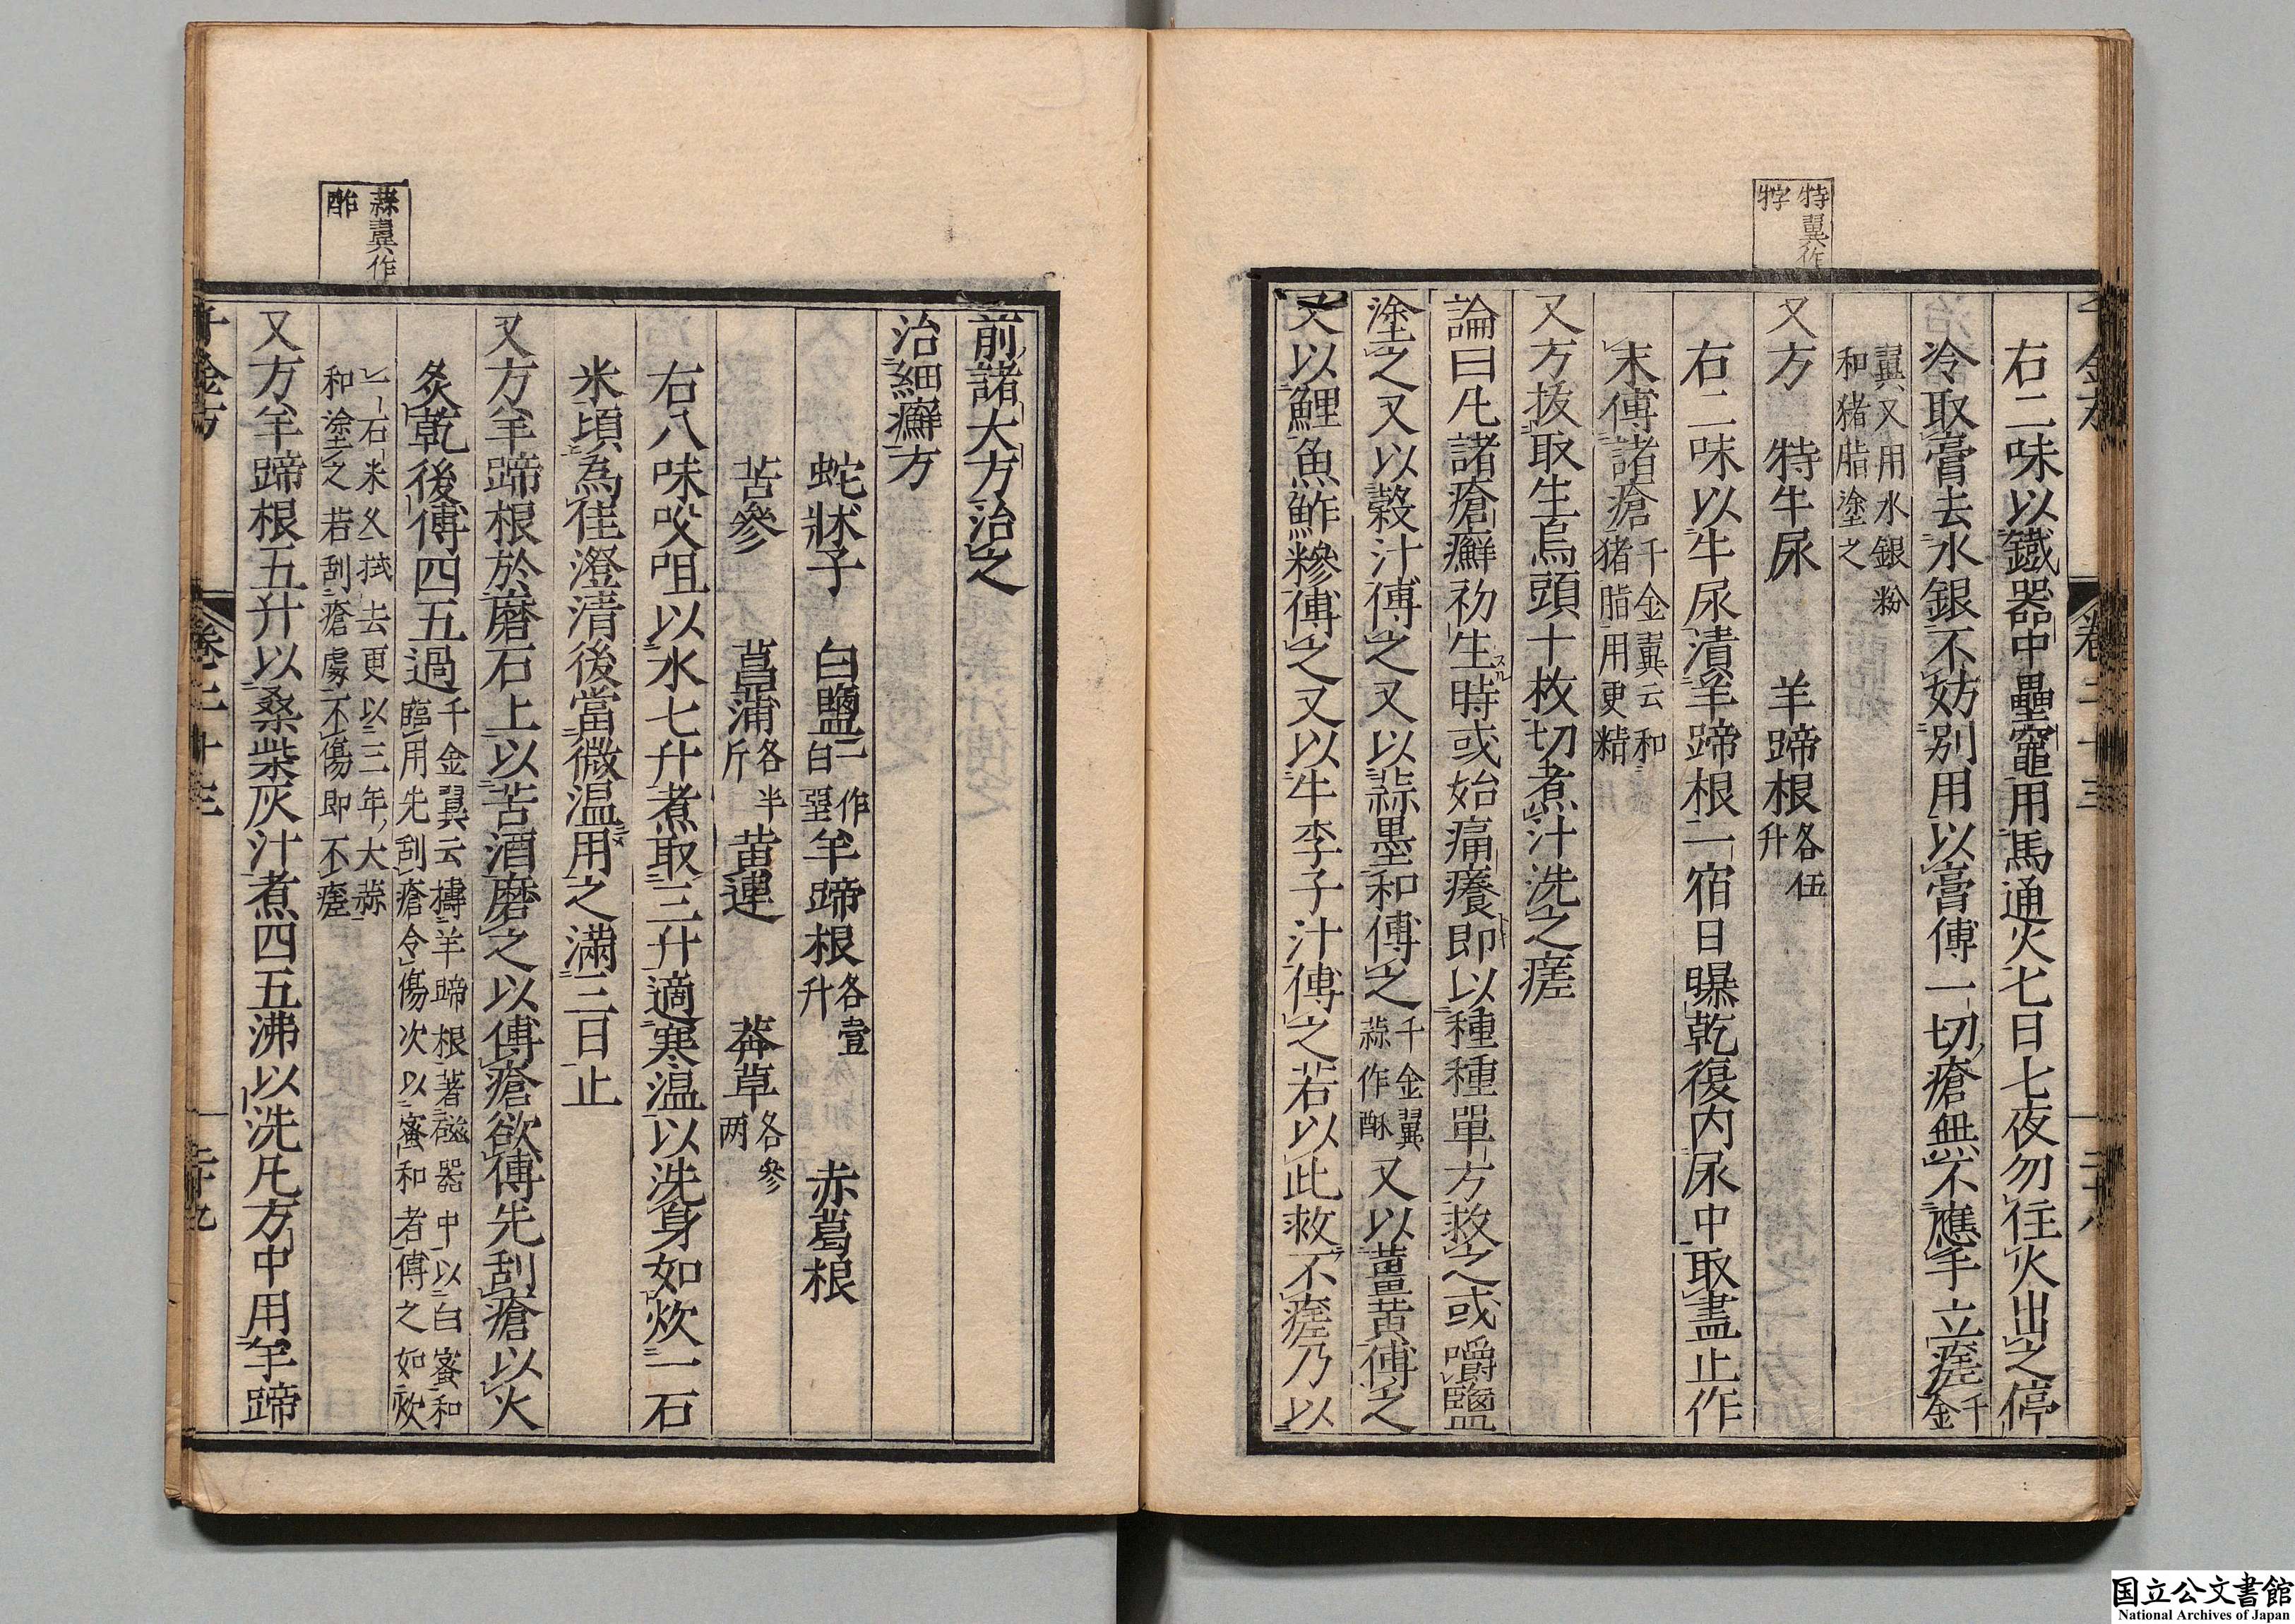 特翼作
牸
右二味以鐵器中壘竈用馬通火七日七夜勿住火出之停
冷取膏去水銀不妨別用以膏傅一切瘡無不應手立瘥千金
翼又用水銀粉
和猪脂塗之
又方　特牛尿　羊蹄根各伍升
右二味以牛尿漬羊蹄根一宿日曝乾復内尿中取盡止作
末傅諸瘡千金翼云和猪脂用更精
又方拔取生烏頭十枚切煮汁洗之瘥
論曰凡諸瘡癬初生時或始痛癢即以種種單方救之或嚼鹽
塗之又以穀汁傅之又以蒜墨和傅之千金翼蒜作酥又以薑黄傅之
又以鯉魚鮓糝傅之又以牛李子汁傅之若以此救不瘥乃以
前諸大方治之
治細癬方
蛇牀子　白鹽一作白堊　羊蹄根各壹升　赤葛根
苦參　菖蒲各半斤　黄連　莽草各參兩
右八味㕮咀以水七升煮取三升適寒温以洗身如炊一石
米頃為佳澄清後當微温用之滿三日止
又方羊蹄根於磨石上以苦酒磨之以傅瘡欲傅先刮瘡以火
炙乾後傅四五過千金翼云擣羊蹄根著磁器中以白蜜和
臨用先刮瘡令傷次以蜜和者傅之如炊
一石米久拭去更以三年大蒜
和塗之若刮瘡處不傷即不瘥
又方羊蹄根五升以桑柴灰汁煮四五沸以洗凡方中用羊蹄
蒜翼作
酢
国立公文書館
National Archives of Japan